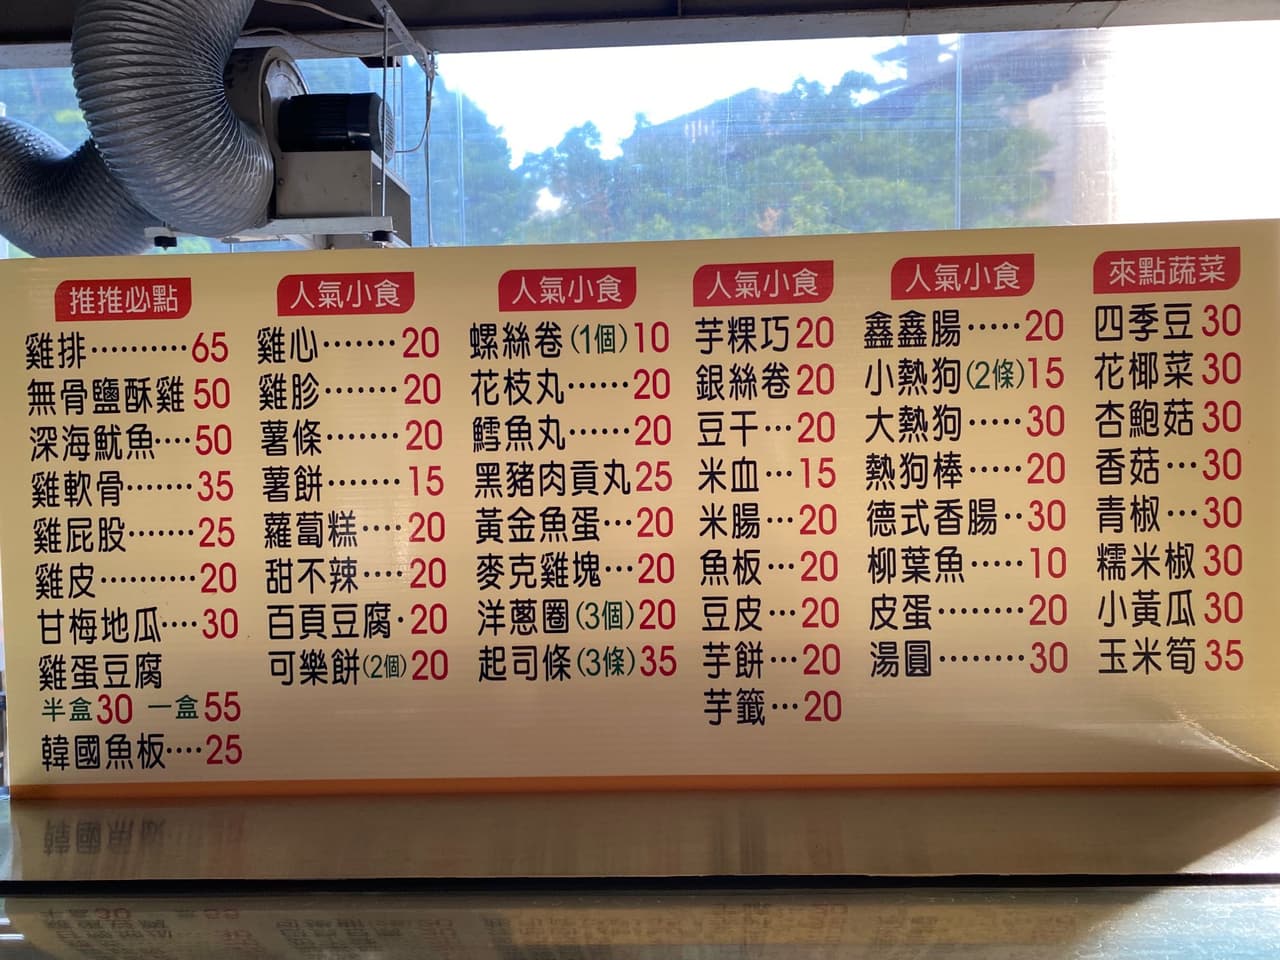 推推必點
雞排··········65
無骨鹽酥雞50
深海魷魚····50
雞軟骨·······35
雞屁股·······25
雞皮··········20
甘梅地瓜····30
雞蛋豆腐
半盒30 一盒55
韓國魚板····25
人氣小食
雞心·······20
雞胗·······20
薯條·······20
薯餅·······15
蘿蔔糕····20
甜不辣·····20
百頁豆腐·20
可樂餅(2個)20
人氣小食
螺絲卷(1個)10
花枝丸······20
鱈魚丸······20
黑豬肉貢丸25
黃金魚蛋···20
麥克雞塊···20
洋蔥圈(3個)20
起司條(3條)35
人氣小食
芋粿巧20
銀絲卷20
豆干···20
米血···15
米腸···20
魚板···20
豆皮···20
芋餅···20
芋籤···20
人氣小食
鑫鑫腸·····20
小熱狗(2條)15
大熱狗·····30
熱狗棒·····20
德式香腸··30
柳葉魚·····10
皮蛋········20
湯圓········30
來點蔬菜
四季豆30
花椰菜30
杏鮑菇30
香菇···30
青椒···30
糯米椒30
小黃瓜30
玉米筍35